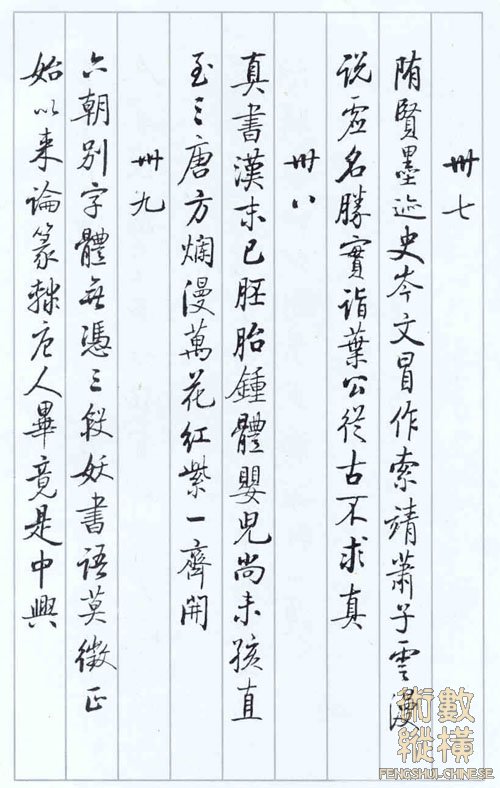 卅七
隋賢墨迹史岑文冒作索靖蕭子雲漫
说虛名勝實詣葉公從古不求真
卅八
真書漢末已胚胎鍾體嬰兒尚未孩直
至三唐方爛漫萬花紅紫一齊開
卅九
六朝别字體無憑三段妖書語莫徵正
始以来論篆隸唐人畢竟是中興
術數
縱橫
FENGSHUI-CHINESE